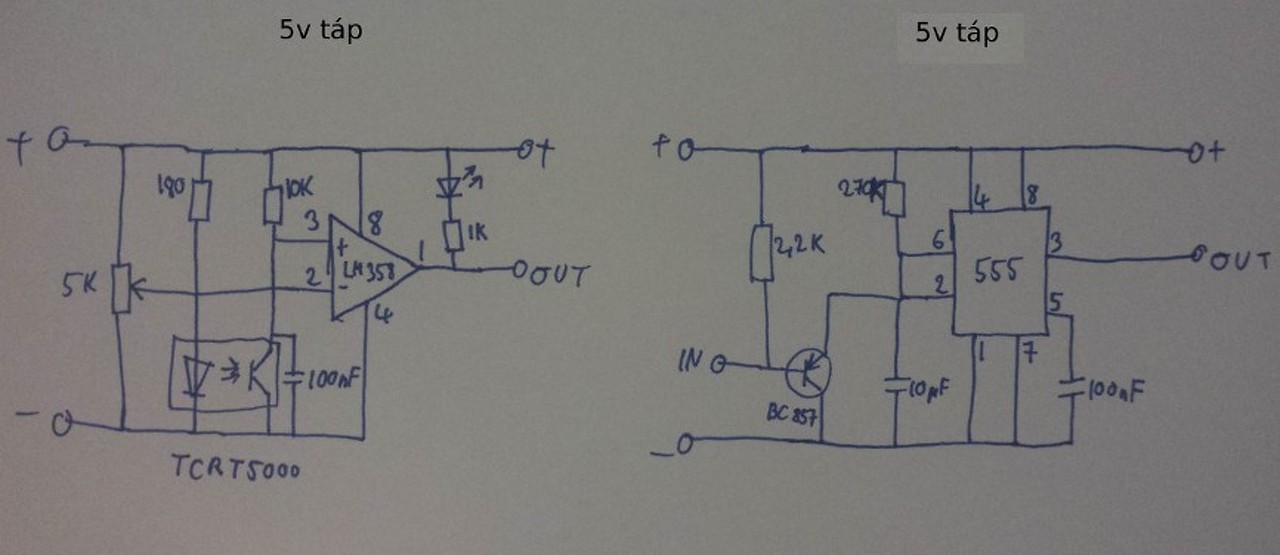 5v táp
+ +
180
10K
3
8
1K
+
LM358
1
2
-
5K
OUT
4
100nF
-
TCRT5000
5v táp
+ +
270K
4 8
2,2K
6
3
555
OUT
2
5
IN
1 7
10µF
100nF
BC857
-